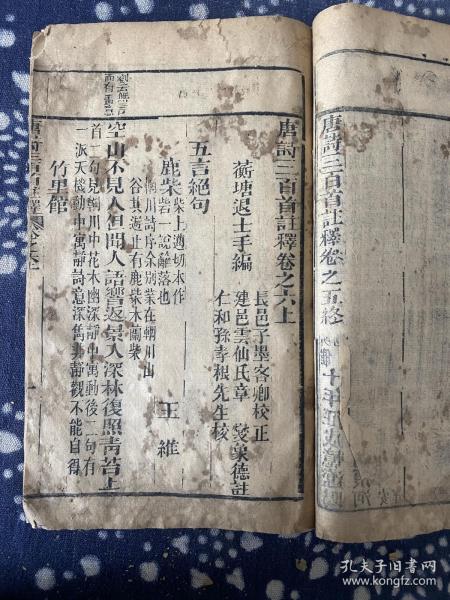 唐詩三百首註釋卷之五終
唐詩三百首註釋卷之六上
蘅塘退士手編
長邑子墨客卿校正
建邑雲仙氏章燮象德註
仁和孫孝根先生校
五言絕句
鹿柴
柴上邁切本作
砦一說籬落也
王維
輞川詩序余別業在輞川山
谷其遊止有鹿柴木蘭柴
空山不見人但聞人語響返景入深林復照青苔上
首二句見輞川中花木幽深靜中寓動後二句有
一派天機動中寓靜詩意深雋非靜觀不能自得
竹里館
孔夫子旧书网